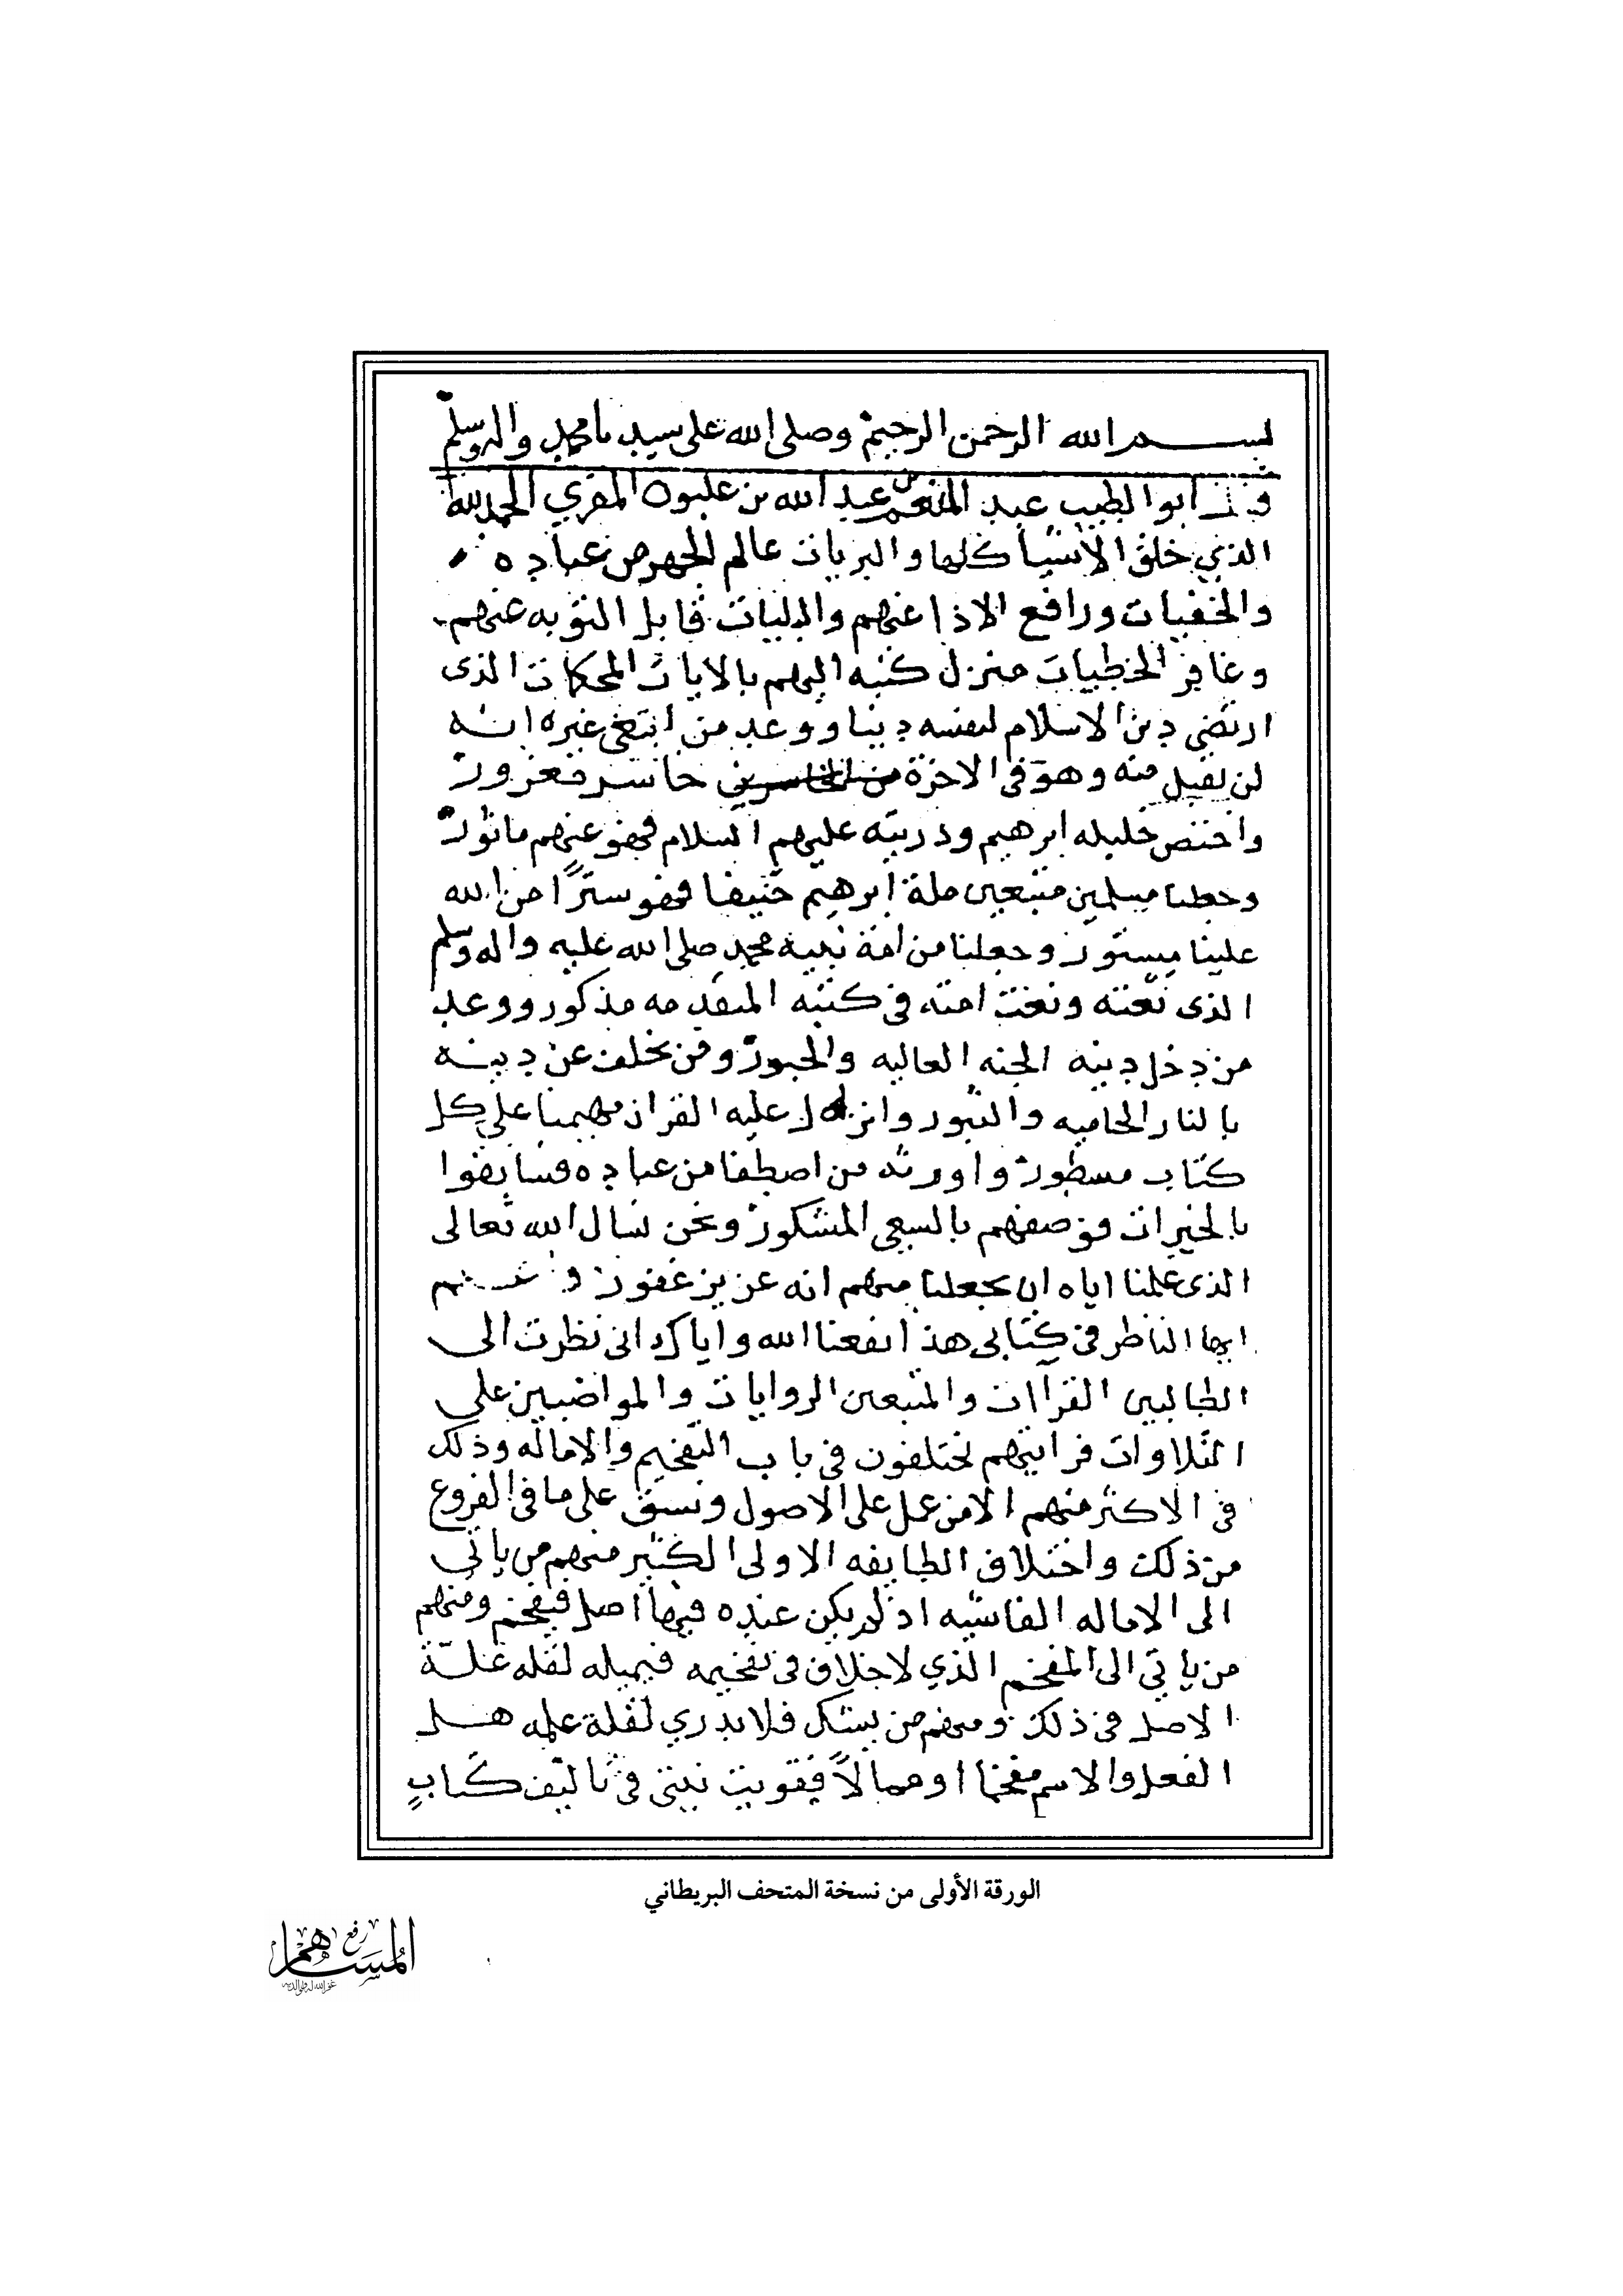 بسم الله الرحمن الرحيم وصلى الله على سيدنا محمد واله وسلم
قال ابوا لطيب عبد المنعم بن عبد الله بن غلبون المقري الحمد لله
الذي خلق الاشيا كلها والبريات عالم الجهر من عباده
والخفيات ورافع الاذا عنهم والبليات قابل التوبه عنهم
وغافر الخطيات منزل كتبه اليهم بالايات المحكمات الذى
ارتضى دين الاسلام لنفسه دينا ووعد من ابتغى غيره انه
لن يقبل منه وهو فى الاخرة من الخاسرين خاسر
واختص خليله ابرهيم وذريته عليهم السلام فهو عنهم ماثور
وجعلنا مسلمين متبعين ملة ابرهيم حنيفا فهو سترًا من الله
علينا مستور وجعلنا من امة نبيه محمد صلى الله عليه واله وسلم
الذى نعته ونعت امته في كتبه المتقدمه مذكور ووعد
من دخل دينه الجنه العاليه والحبور ومن تخلف عن دينه
بالنار الحاميه والثبور وانزل عليه القران مهيمنا على كل
كتاب مسطور واورثه من اصطفا من عباده فسابقوا
بالخيرات فوصفهم بالسعي المشكور ونحن نسال الله تعالى
الذى علمنا اياه ان يجعلنا منهم انه عزيز غفور
ايها الناظر في كتابى هذا نفعنا الله واياك انى نظرت الى
الطالبين القراات والمتبعين الروايات والمواضبين على
التلاوات فرايتهم يختلفون في باب التفخيم والاماله وذلك
فى الاكثر منهم الا من عمل على الاصول ونسق على ما فى الفروع
من ذلك واختلاف الطايفه الاولى الكثير منهم من ياتى
الى الاماله الفاشيه اذ لم يكن عنده فيها اصل فيفخم ومنهم
من ياتي الى المفخم الذي لا خلاف في تفخيمه فيميله لقله علة
الاصل في ذلك ومنهم من يشك فلا يدري لقلة علمه هل
الفعل والاسم مفخما او ممالاً فقويت نيتى في تاليف كتاب
الورقة الأولى من نسخة المتحف البريطاني
رفع
المساهم
غفر الله له ولوالديه